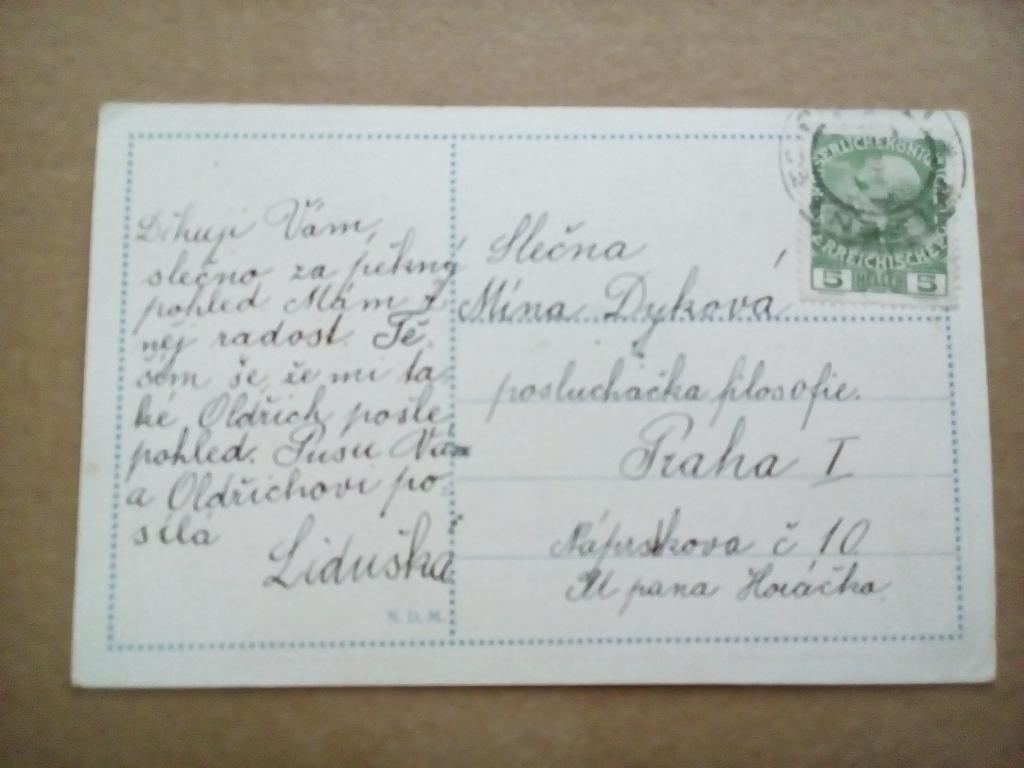 Děkuji Vám,
slečno za pěkný
pohled Mám z
něj radost. Tě-
ším se, že mi ta-
ké Oldřich pošle
pohled. Pusu Vám
a Oldřichovi po-
sílá
Liduška
N. D. M.
Slečna
Mína Dyková,
posluchačka filosofie.
Praha I
Náprstkova č 10
U pana Horáčka
SERLICHEKÖNIG
ERREICHISCHE
5 5